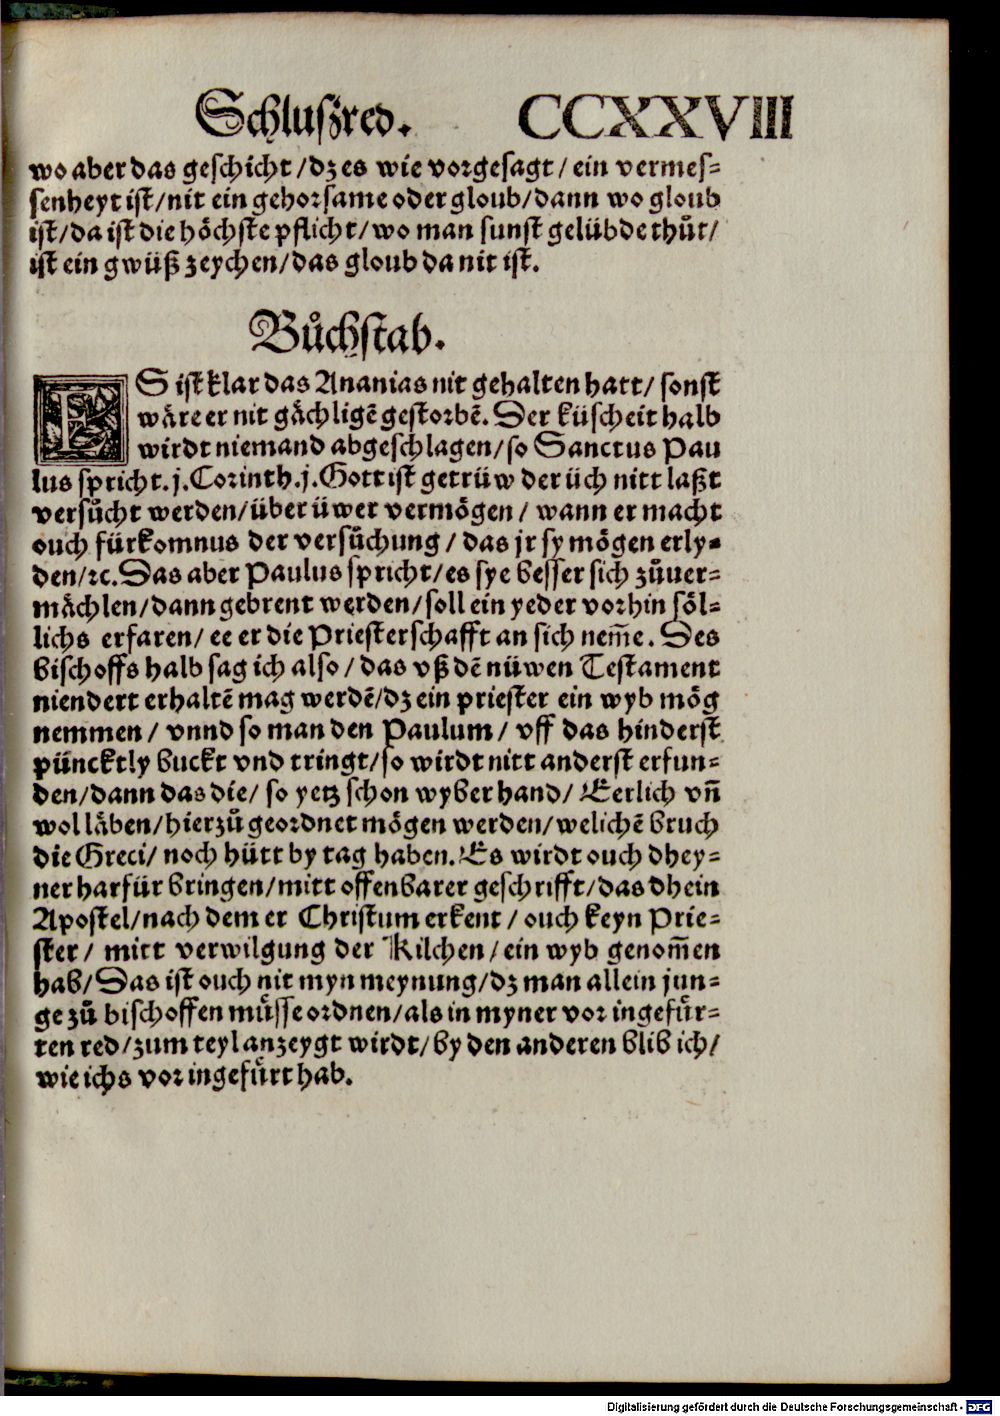 Schluszred. CCXXVIII
wo aber das geschicht / dz es wie vorgesagt / ein vermes⸗
senheyt ist / nit ein gehorsame oder gloub / dann wo gloub
ist / da ist die höchste pflicht / wo man sunst gelübde thůt /
ist ein gwüß zeychen / das gloub da nit ist.
Bůchstab.
ES ist klar das Ananias nit gehalten hatt / sonst
wäre er nit gächligē gestorbē. Der küscheit halb
wirdt niemand abgeschlagen / so Sanctus Pau
lus spricht. j. Corinth. j. Gott ist getrüw der üch nitt laßt
versůcht werden / über üwer vermögen / wann er macht
ouch fürkomnus der versůchung / das jr sy mögen erly⸗
den / ꝛc. Das aber Paulus spricht / es sye besser sich zůuer⸗
mächlen / dann gebrent werden / soll ein yeder vorhin söl⸗
lichs erfaren / ee er die Priesterschafft an sich nem̄e. Des
bischoffs halb sag ich also / das vß dē nüwen Testament
niendert erhaltē mag werdē / dz ein priester ein wyb mög
nemmen / vnnd so man den Paulum / vff das hinderst
püncktly buckt vnd tringt / so wirdt nitt anderst erfun⸗
den / dann das die / so yetz schon wyber hand / Eerlich vn̄
wol läben / hierzů geordnet mögen werden / welichē bruch
die Greci / noch hütt by tag haben. Es wirdt ouch dhey⸗
ner harfür bringen / mitt offenbarer geschrifft / das dhein
Apostel / nach dem er Christum erkent / ouch keyn Prie⸗
ster / mitt verwilgung der Kilchen / ein wyb genom̄en
hab / Das ist ouch nit myn meynung / dz man allein jun⸗
ge zů bischoffen müsse ordnen / als in myner vor ingefür⸗
ten red / zum teyl anzeygt wirdt / by den anderen blib ich /
wie ichs vor ingefürt hab.
Digitalisierung gefördert durch die Deutsche Forschungsgemeinschaft - DFG